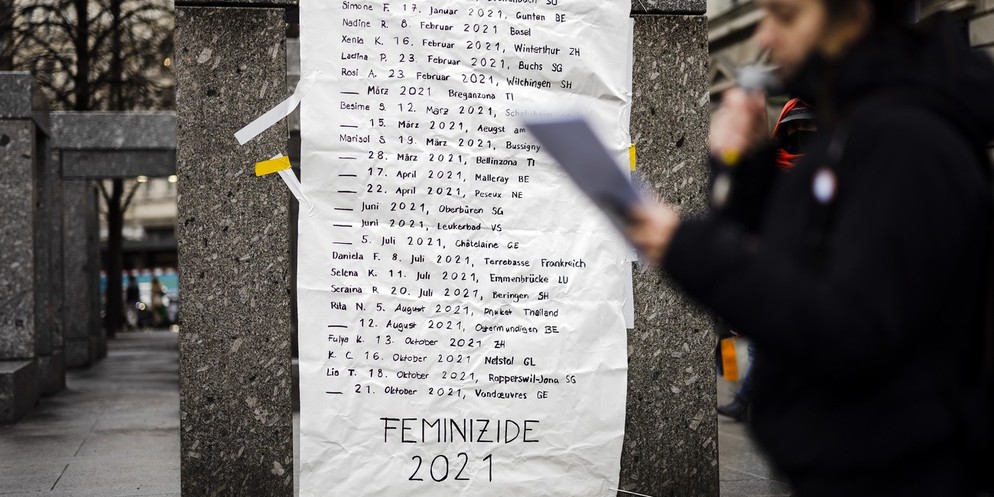 Simone F. 17. Januar 2021, Gunten BE
Nadine R. 8. Februar 2021 Basel
Xenia K. 16. Februar 2021, Winterthur ZH
Ladina P. 23. Februar 2021, Buchs SG
Rosi A. 23 Februar 2021, Wilchingen SH
— März 2021 Breganzona TI
Besime S. 12. März 2021,
— 15. März 2021, Aeugst am
Marisol S. 19. März 2021, Bussigny
— 28. März 2021, Bellinzona TI
— 17. April 2021, Malleray BE
— 22. April 2021, Peseux NE
— Juni 2021, Oberbüren SG
— Juni 2021, Leukerbad VS
— 5. Juli 2021, Châtelaine GE
Daniela F. 8. Juli 2021, Terrebasse Frankreich
Selena K. 11. Juli 2021, Emmenbrücke LU
Seraina R 20. Juli 2021, Beringen SH
Rita N. 5. August 2021, Phuket Thailand
— 12. August 2021, Ostermundigen BE
Fulya K. 13. October 2021 ZH
K. C. 16. Oktober 2021 Netstal GL
Lia T. 18. Oktober 2021, Rapperswil-Jona SG
— 21. Oktober 2021, Vandœuvres GE
FEMINIZIDE
2021